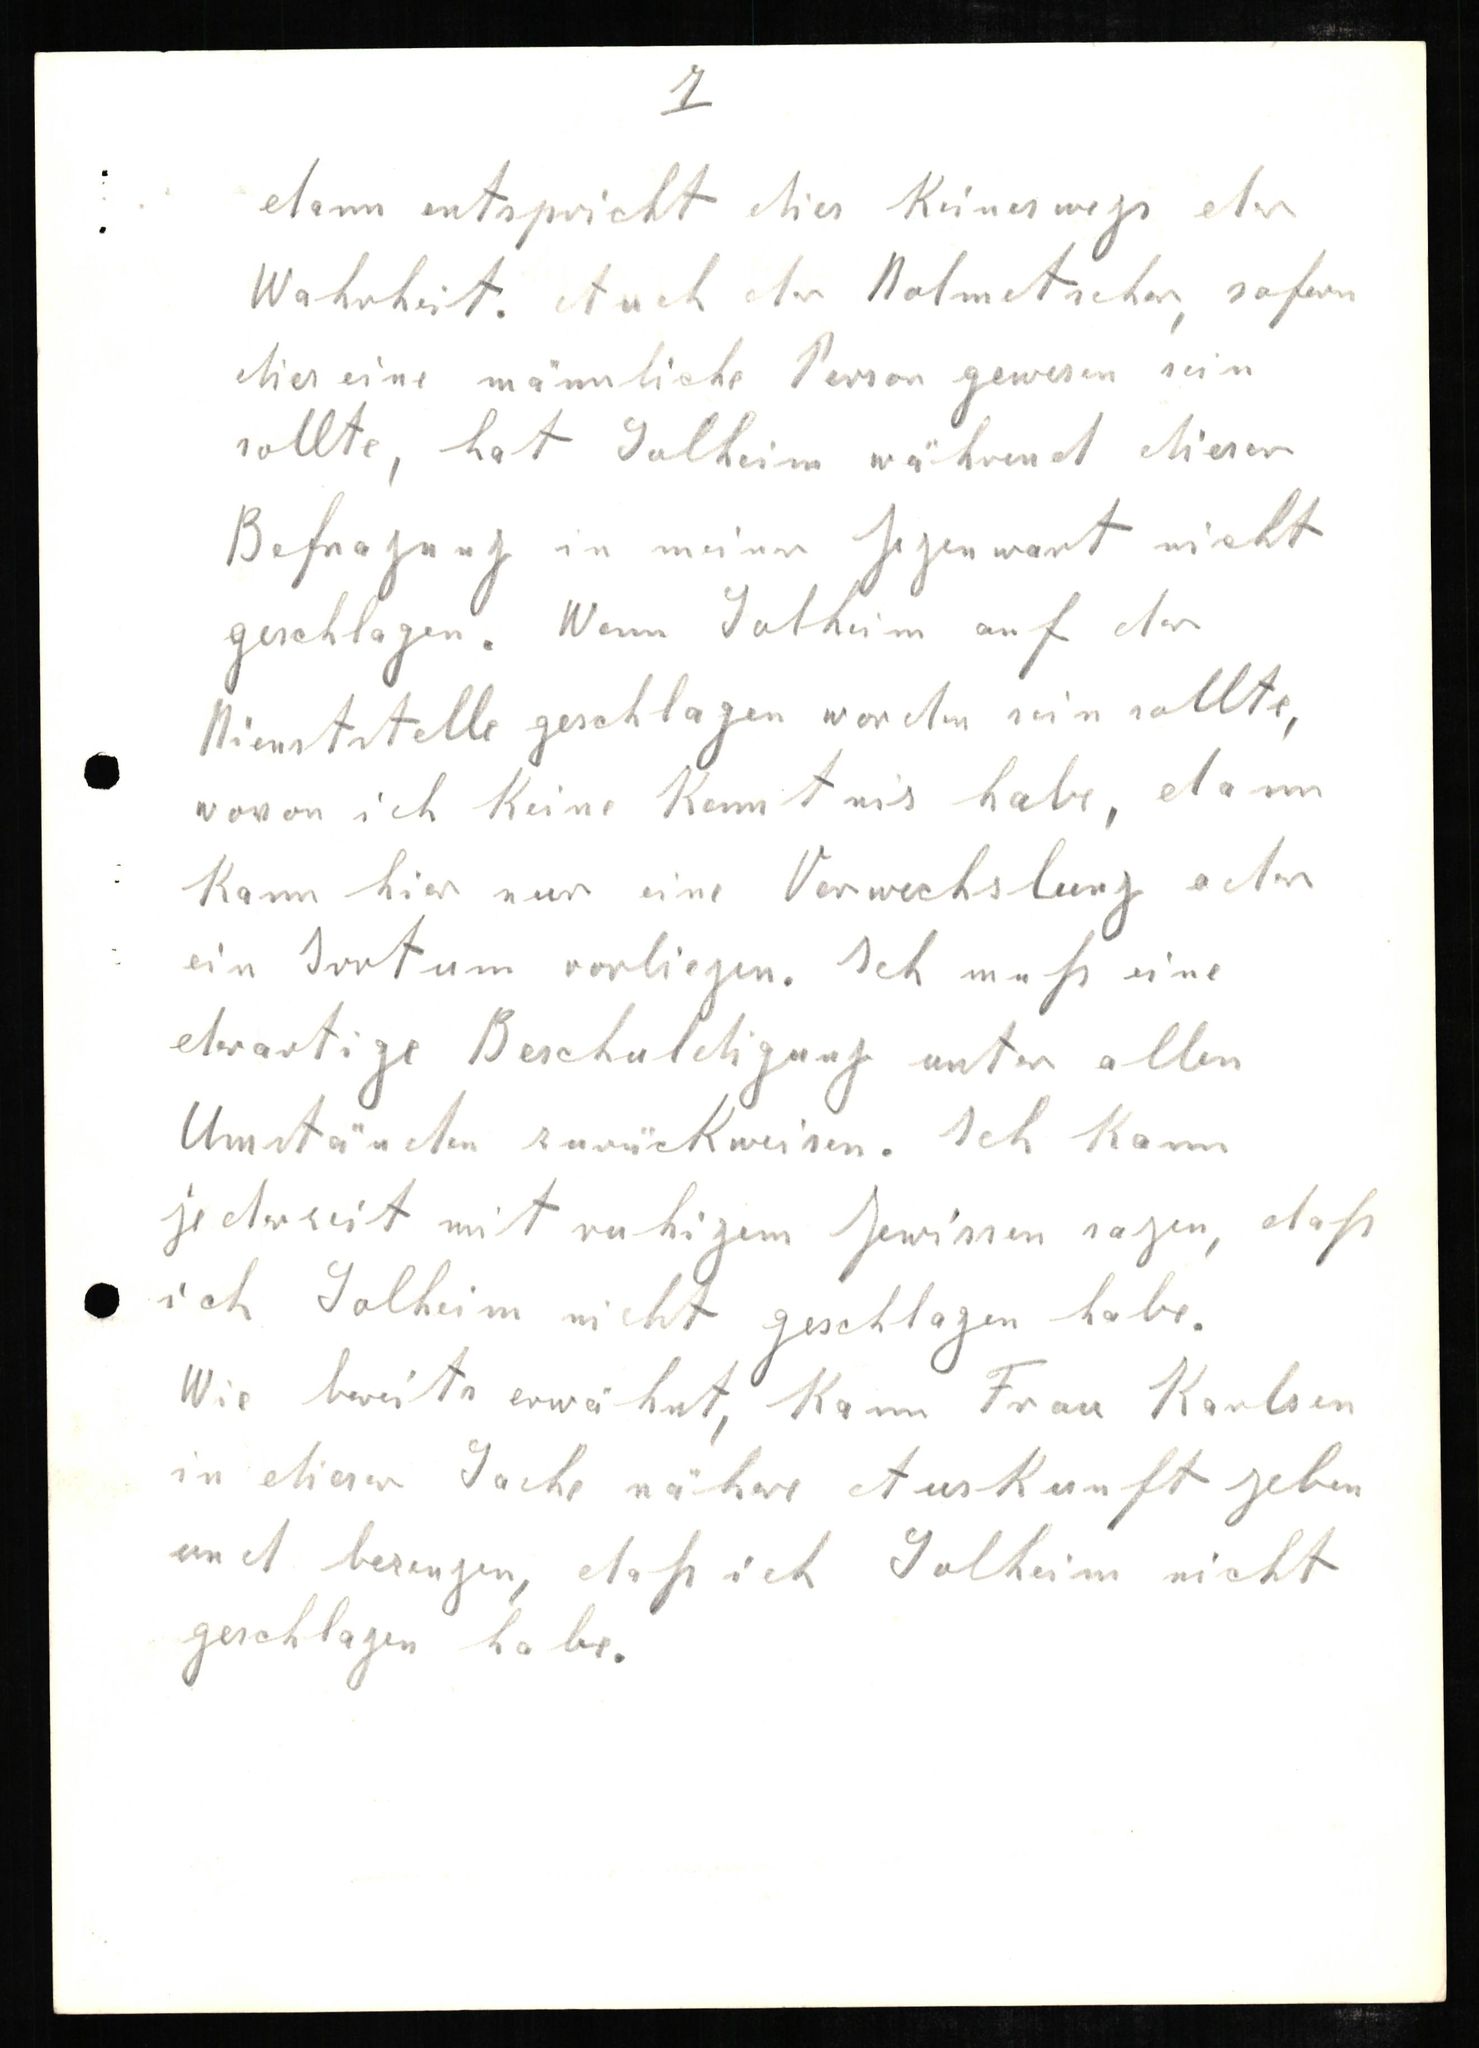 7
dann entspricht dies keineswegs der
Wahrheit. Auch der Dolmetscher, sofern
dies eine männliche Person gewesen sein
sollte, hat Solheim während dieser
Befragung in meiner Gegenwart nicht
geschlagen. Wenn Solheim auf der
Dienststelle geschlagen worden sein sollte,
wovon ich keine Kenntnis habe, dann
kann hier nur eine Verwechslung oder
ein Irrtum vorliegen. Ich muß eine
derartige Beschuldigung unter allen
Umständen zurückweisen. Ich kann
jederzeit mit ruhigem Gewissen sagen, daß
ich Solheim nicht geschlagen habe.
Wie bereits erwähnt, kann Frau Karlsen
in dieser Sache nähere Auskunft geben
und bezeugen, daß ich Solheim nicht
geschlagen habe.